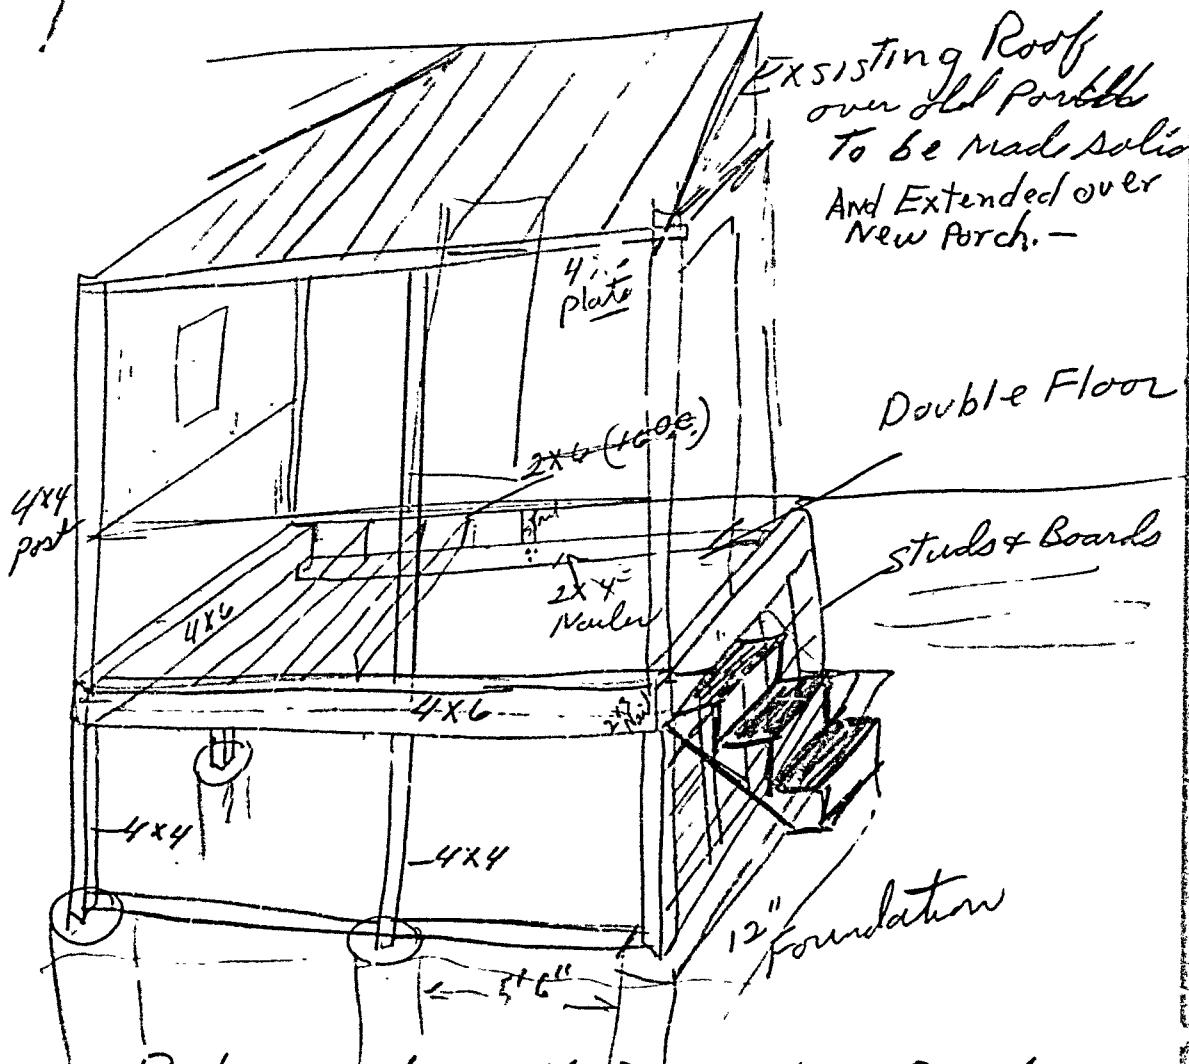 Exsisting Roof
over old
To be made solid
And Extended over
New Porch.—
plate
Double Floor
2x6 (16 O.C.)
4x4
post
studs & Boards
2x4
Nailer
4x6
4x6
4x4
4x4
12"
Foundation
5'6"